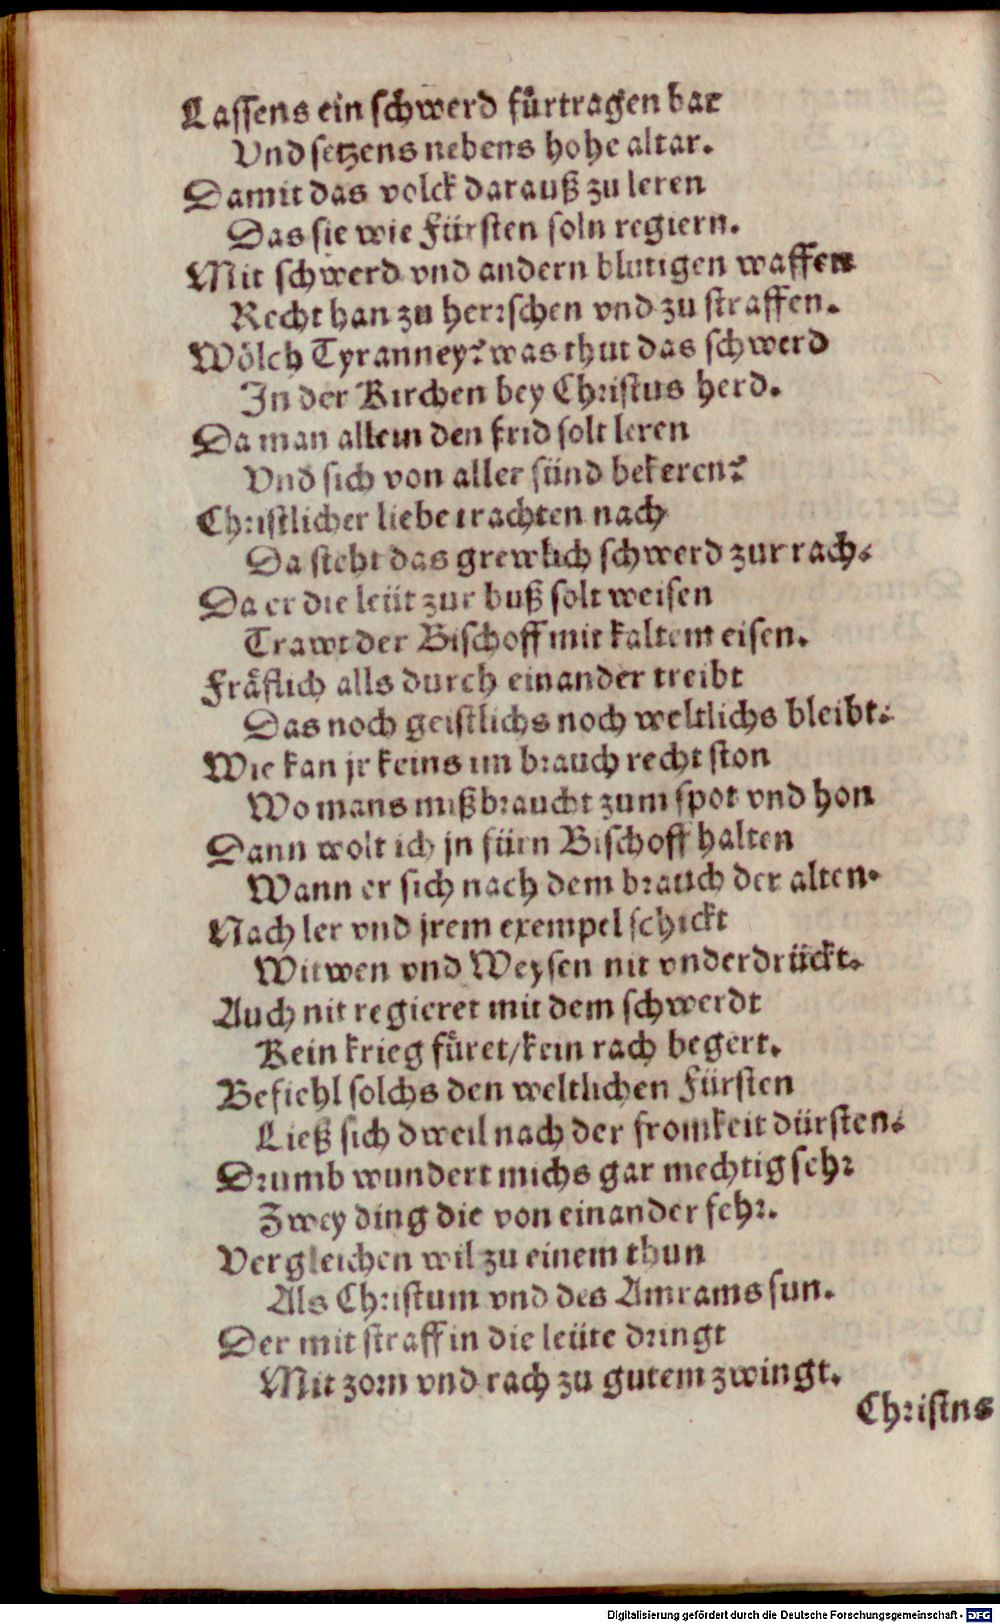 Lassens ein schwerd fürtragen bar
Vnd setzens nebens hohe altar.
Damit das volck darauß zu leren
Das sie wie Fürsten soln regiern.
Mit schwerd vnd andern blutigen waffen
Recht han zu herrschen vnd zu straffen.
Wölch Tyranney? was thut das schwerd
In der Kirchen bey Christus herd.
Da man allein den frid solt leren
Vnd sich von aller sünd bekeren?
Christlicher liebe trachten nach
Da steht das grewlich schwerd zur rach.
Da er die leüt zur buß solt weisen
Trawt der Bischoff mit kaltem eisen.
Fräflich alls durch einander treibt
Das noch geistlichs noch weltlichs bleibt.
Wie kan jr keins im brauch recht ston
Wo mans mißbraucht zum spot vnd hon
Dann wolt ich jn fürn Bischoff halten
Wann er sich nach dem brauch der alten.
Nach ler vnd jrem exempel schickt
Witwen vnd Weysen nit vnderdrückt.
Auch nit regieret mit dem schwerdt
Kein krieg füret/kein rach begert.
Befiehl solchs den weltlichen Fürsten
Ließ sich dweil nach der fromkeit dürsten.
Drumb wundert michs gar mechtig sehr
Zwey ding die von einander fehr.
Vergleichen wil zu einem thun
Als Christum vnd des Amrams sun.
Der mit straff in die leüte dringt
Mit zorn vnd rach zu gutem zwingt.
Christns
Digitalisierung gefördert durch die Deutsche Forschungsgemeinschaft - DFG